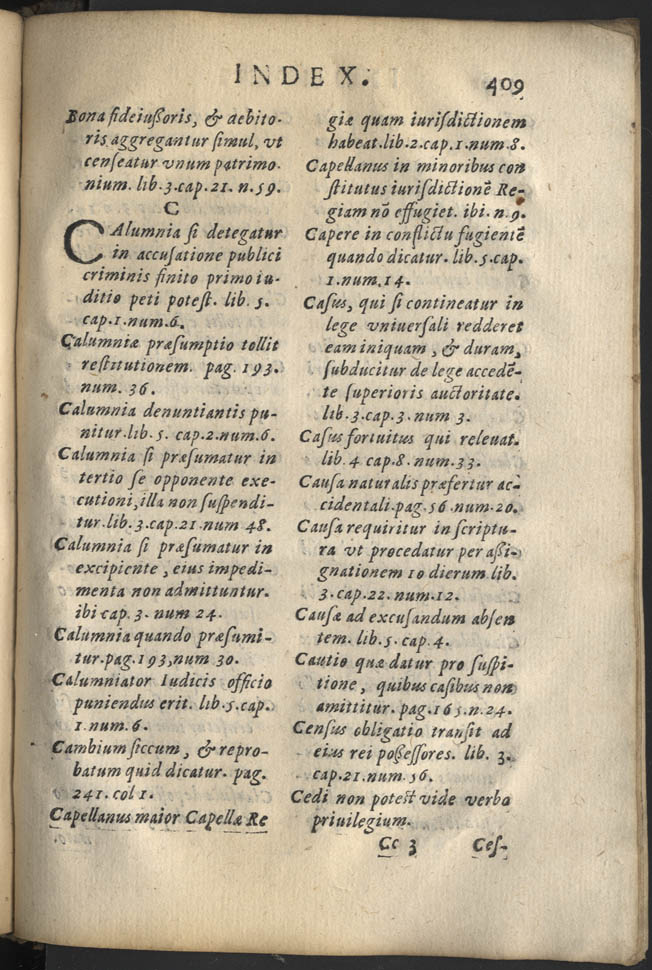 INDEX.
409
Bona fideiußoris, & debito-
ris aggregantur simul, vt
censeatur vnum patrimo
nium. lib. 3. cap. 21. n. 59.
C
CAlumnia si detegatur
in accusatione publici
criminis finito primo iu-
ditio peti potest. lib. 5.
cap. 1. num. 6.
Calumniæ præsumptio tollit
restitutionem. pag. 193.
num. 36.
Calumnia denuntiantis pu-
nitur. lib. 5. cap. 2. num. 6.
Calumnia si præsumatur in
tertio se opponente exe-
cutioni, illa non suspendi-
tur. lib. 3. cap. 21. num 48.
Calumnia si præsumatur in
excipiente, eius impedi-
menta non admittuntur.
ibi cap. 3. num 24.
Calumnia quando præsumi-
tur. pag. 193, num 30.
Calumniator Iudicis officio
puniendus erit. lib. 5. cap.
1. num. 6.
Cambium siccum, & repro-
batum quid dicatur. pag.
241. col 1.
Capellanus maior Capellæ Re
giæ quam iurisdictionem
habeat. lib. 2. cap. 1. num. 8.
Capellanus in minoribus con
stitutus iurisdictionē Re-
giam nō effugiet. ibi. n. 9.
Capere in conflictu fugientē
quando dicatur. lib. 5. cap.
1. num. 14.
Casus, qui si contineatur in
lege vniuersali redderet
eam iniquam, & duram,
subducitur de lege accedē-
te superioris auctoritate.
lib. 3. cap. 3. num 3.
Casus fortuitus qui releuat.
lib. 4 cap. 8. num. 33.
Causa naturalis præfertur ac-
cidentali. pag. 56 num. 20.
Causa requiritur in scriptu-
ra vt procedatur per aßi-
gnationem 10 dierum lib.
3. cap. 22. num. 12.
Causæ ad excusandum absen
tem. lib. 5. cap. 4.
Cautio quæ datur pro suspi-
tione, quibus casibus non
amittitur. pag. 165. n. 24.
Census obligatio transit ad
eius rei poßessores. lib. 3.
cap. 21. num 56.
Cedi non potest vide verbo
priuilegium.
Cc 3
Ces-